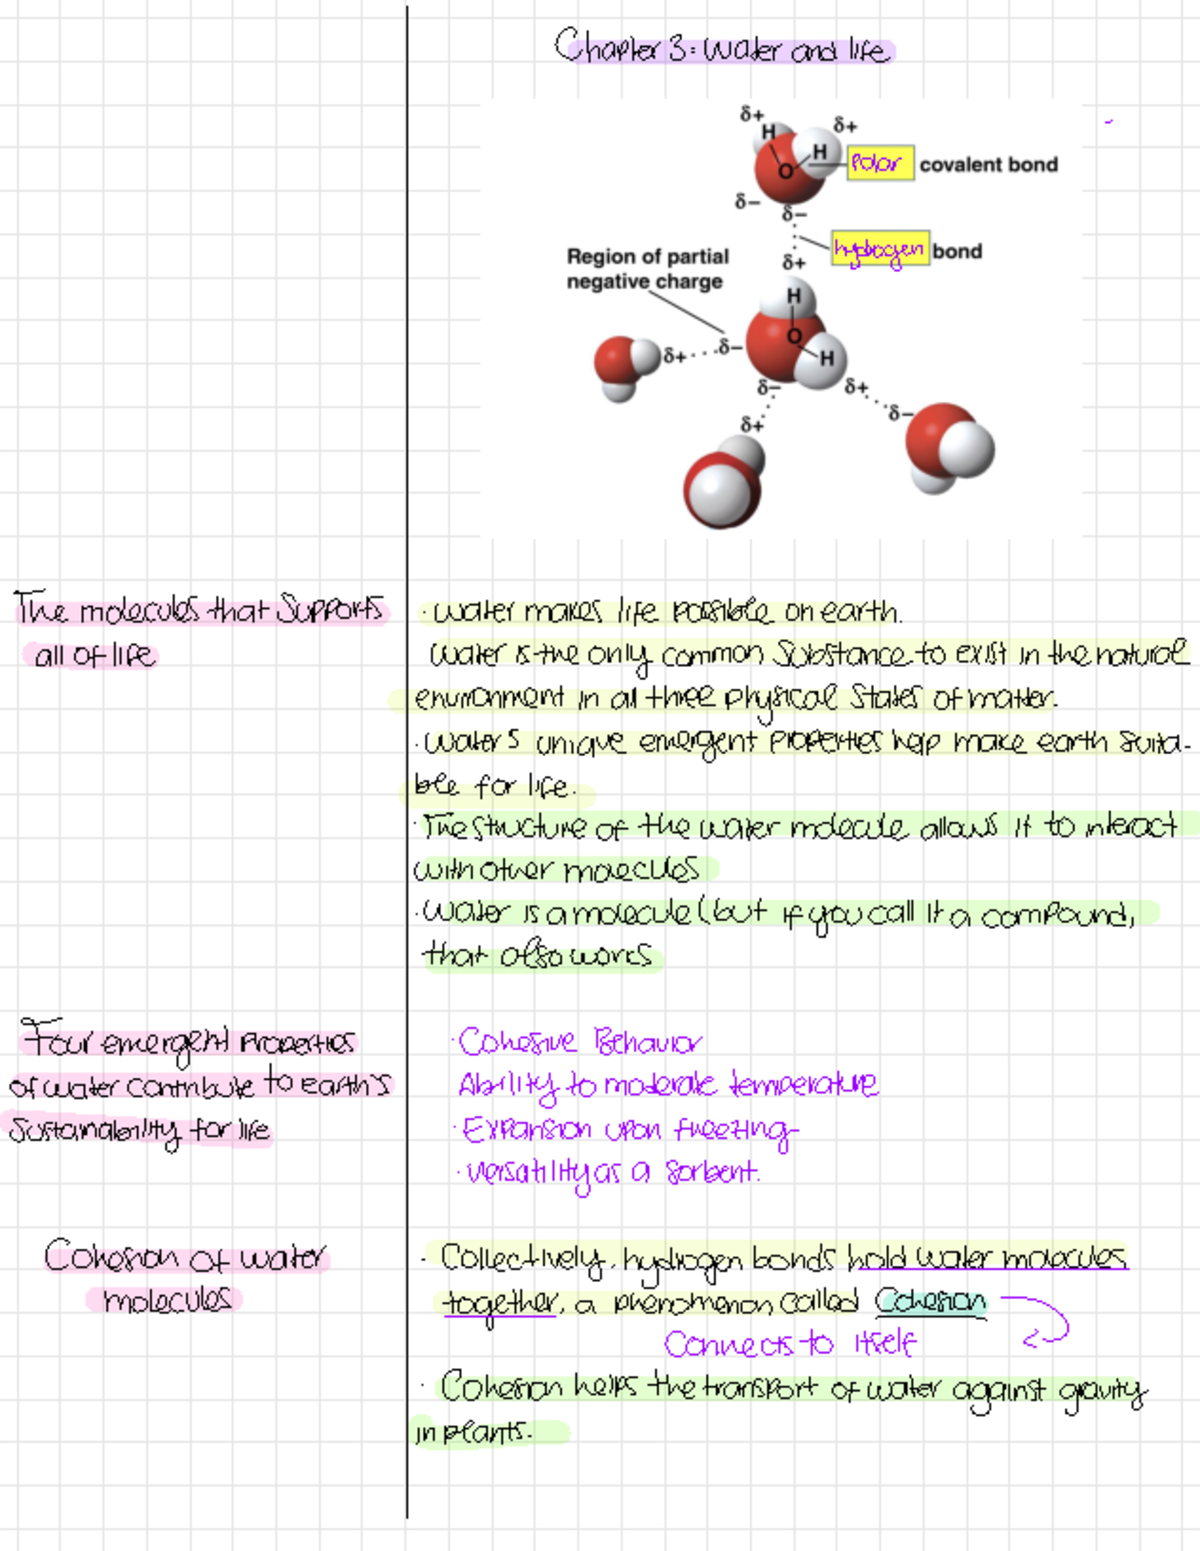 Chapter 3: Water and life
δ+
H
δ+
H
O
Polar covalent bond
δ−
δ−
hydrogen bond
δ+
Region of partial
negative charge
H
O
δ+
δ−
H
δ−
δ+
δ−
δ+
The molecules that Supports
all of life
· water makes life possible on earth.
water is the only common Substance to exist in the natural
environment in all three physical States of matter.
· water's unique emergent properties help make earth suita-
ble for life.
· The structure of the water molecule allows it to interact
with other molecules
· Water is a molecule (but if you call it a compound,
that also works
Four emergent Properties
of water contribute to earth's
Sustainability for life
· Cohesive Behavior
Ability to moderate temperature
· Expansion upon freezing
· versatility as a sorbent.
Cohesion of water
molecules
· Collectively, hydrogen bonds hold water molecules
together, a phenomenon called Cohesion
Connects to itself
· Cohesion helps the transport of water against gravity
in plants.